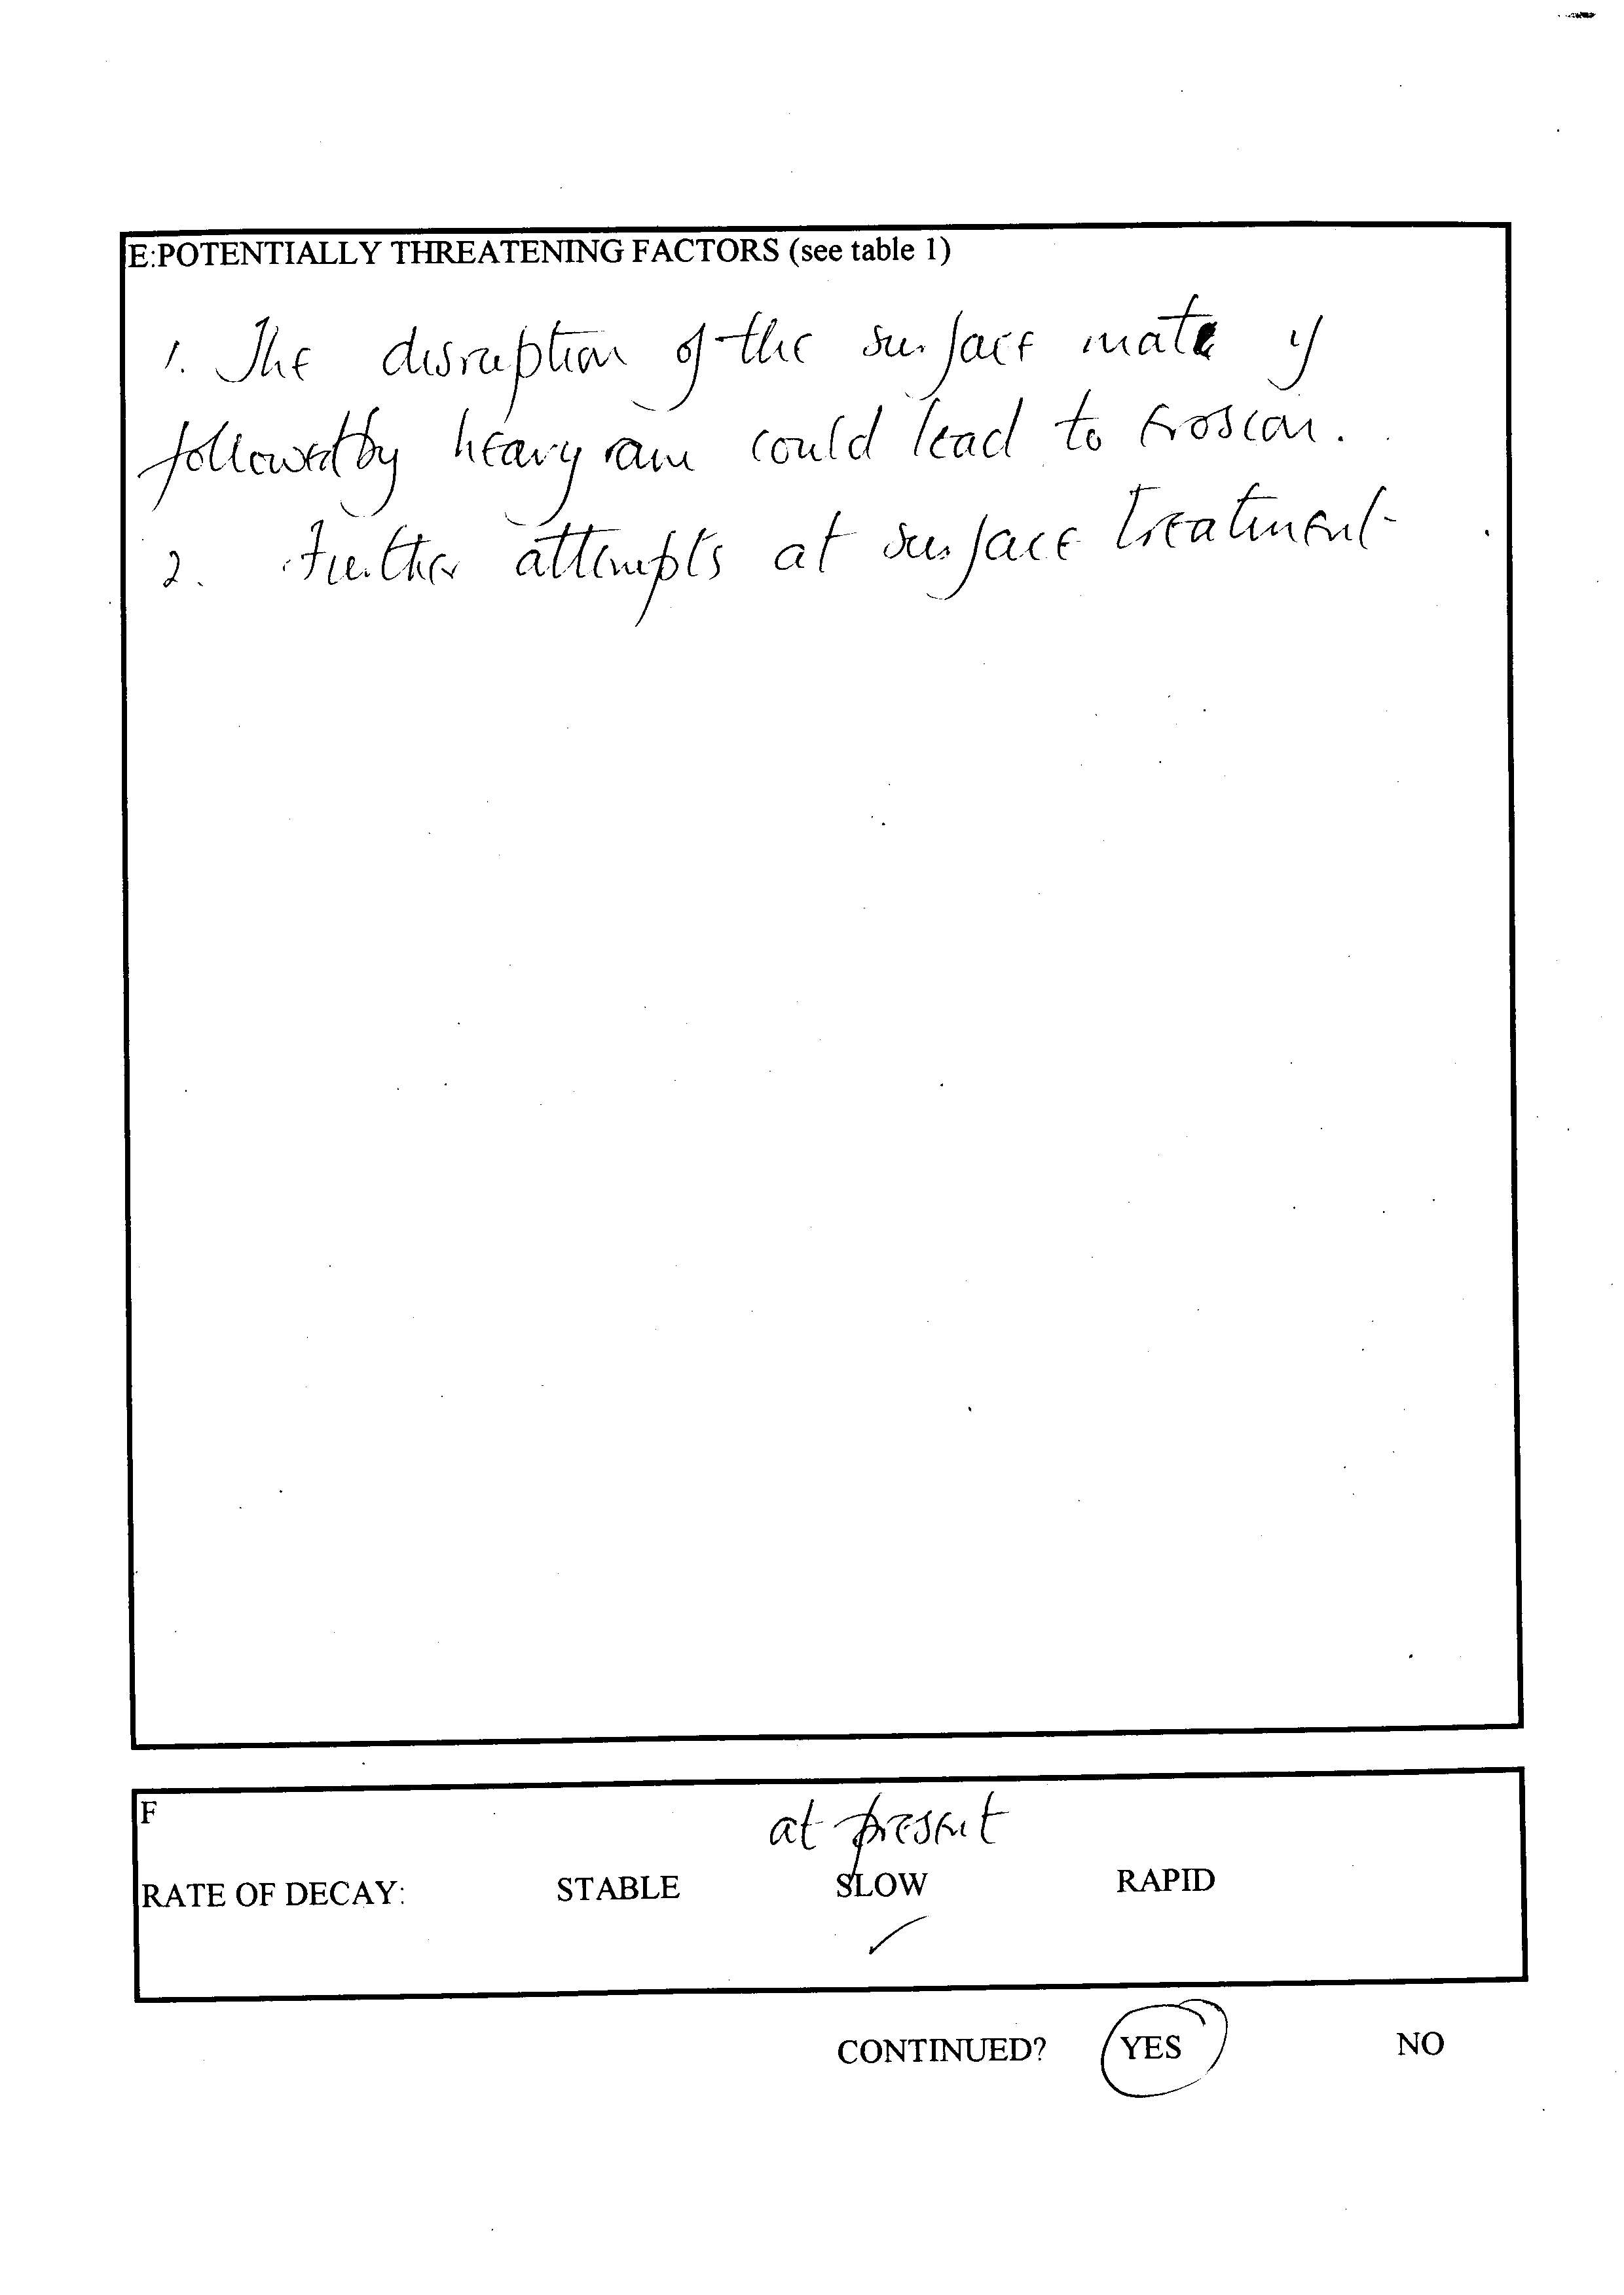 E:POTENTIALLY THREATENING FACTORS (see table 1)
1. The disruption of the surface if
followed by heavy rain could lead to erosion.
2. Further attempts at surface treatment
F
at present
RATE OF DECAY: STABLE SLOW RAPID
✓
CONTINUED? YES NO